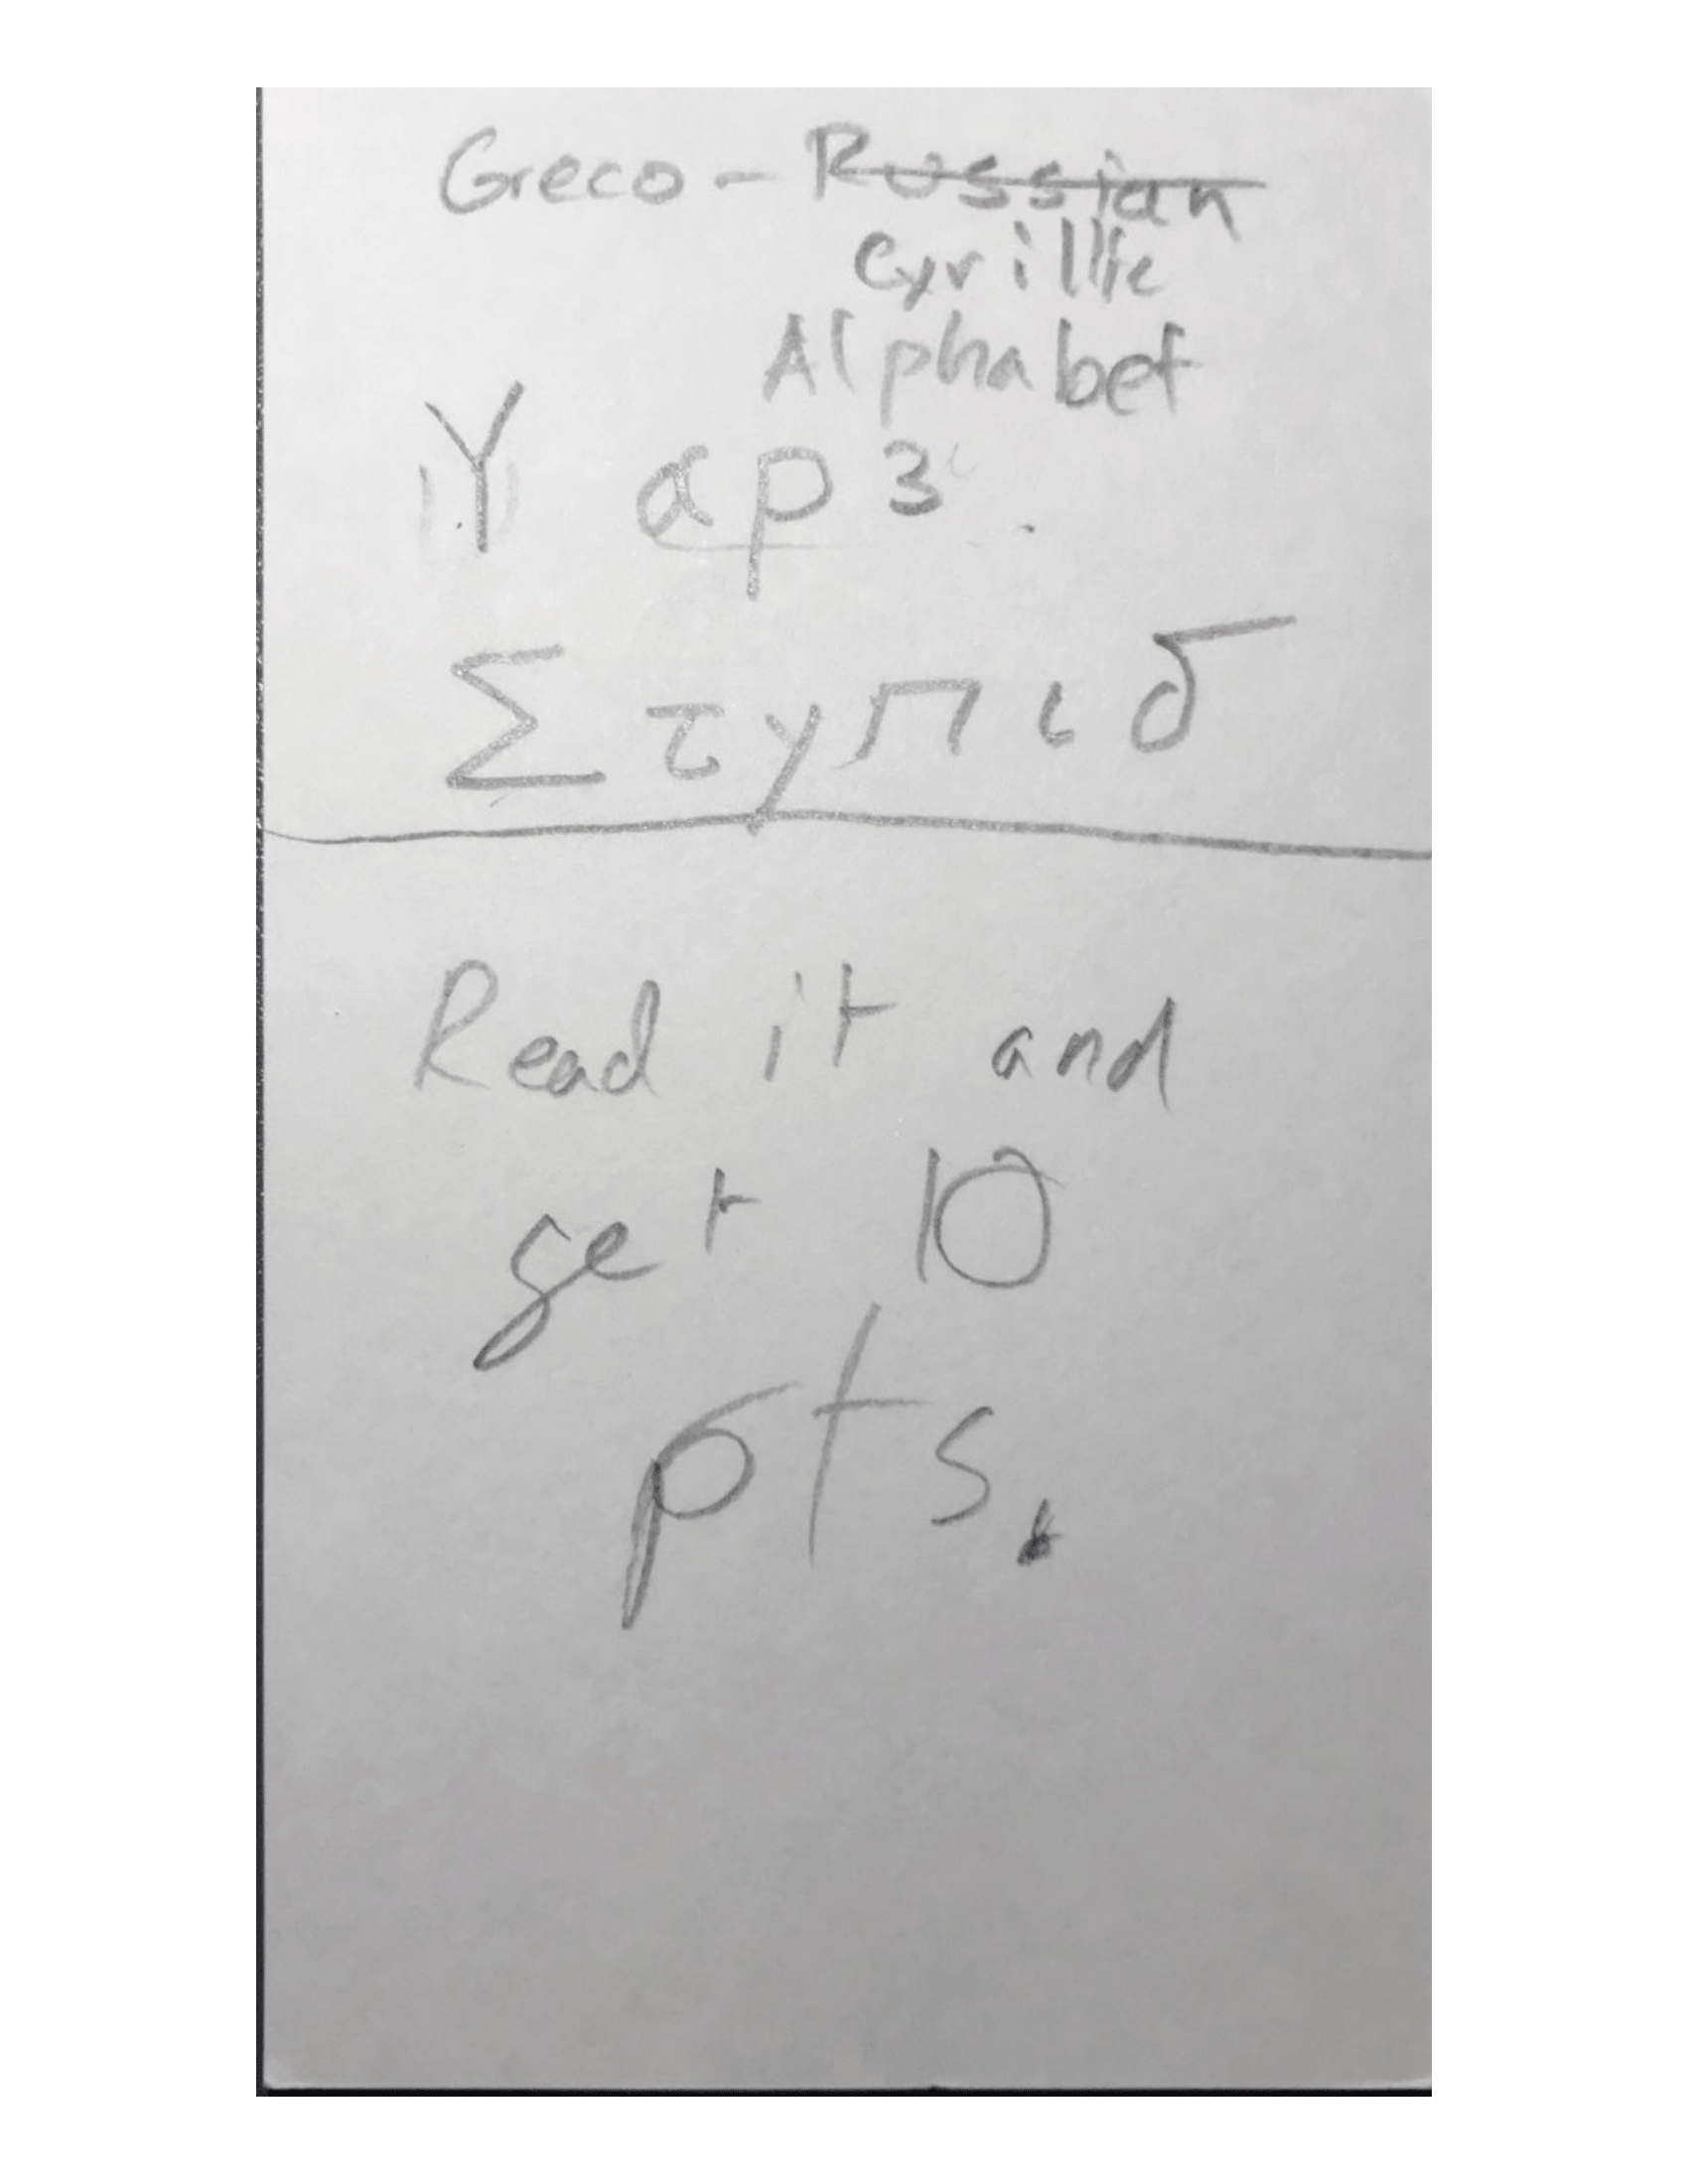 Greco - Russian
Cyrillic
Alphabet
Υ αρ з
Στуπιδ
Read it and
get 10
pts.